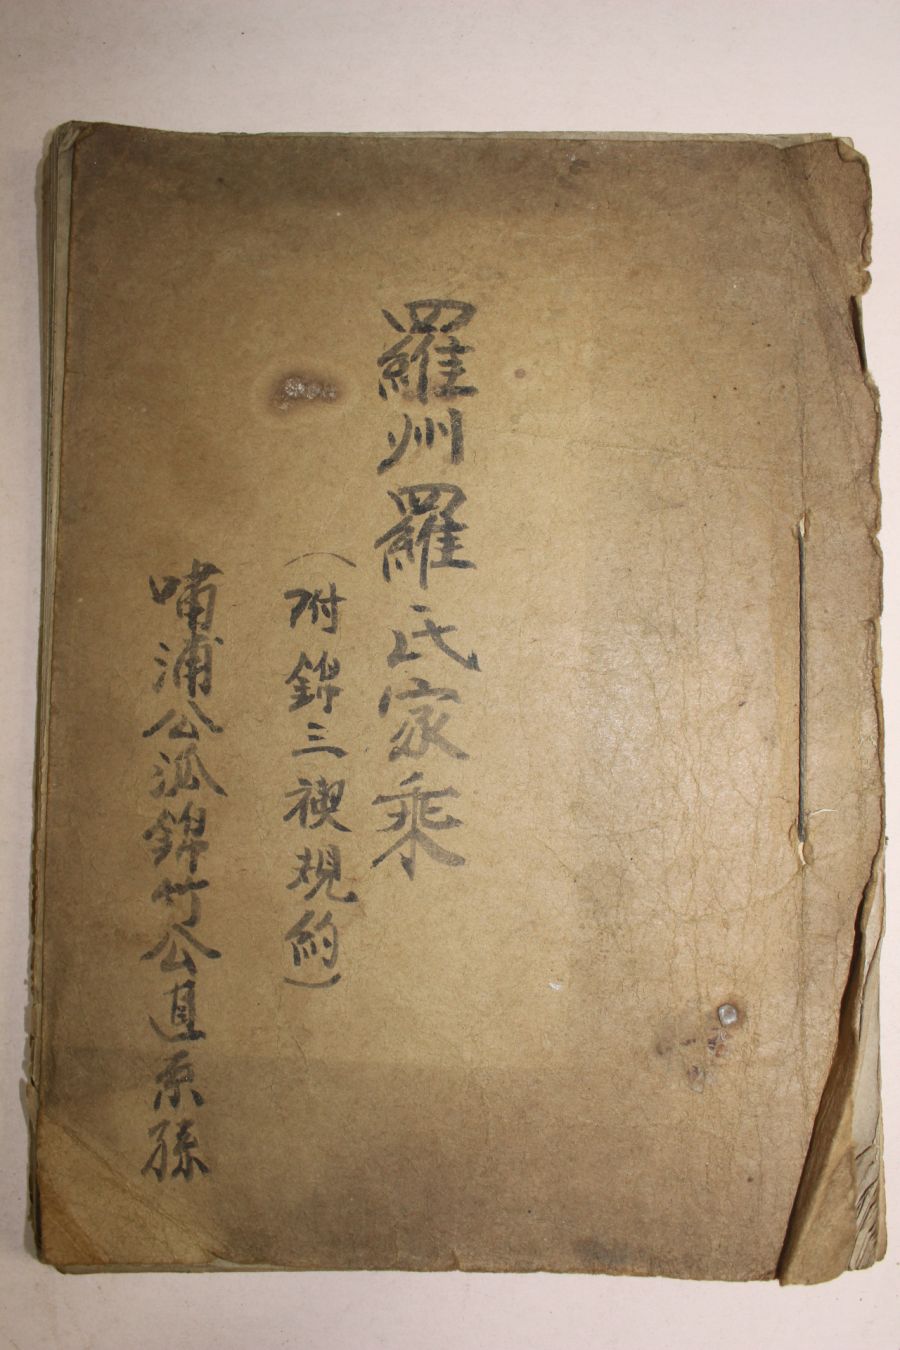 羅州羅氏家乘
（附錦三禊規約）
嘯浦公派錦竹公直系孫